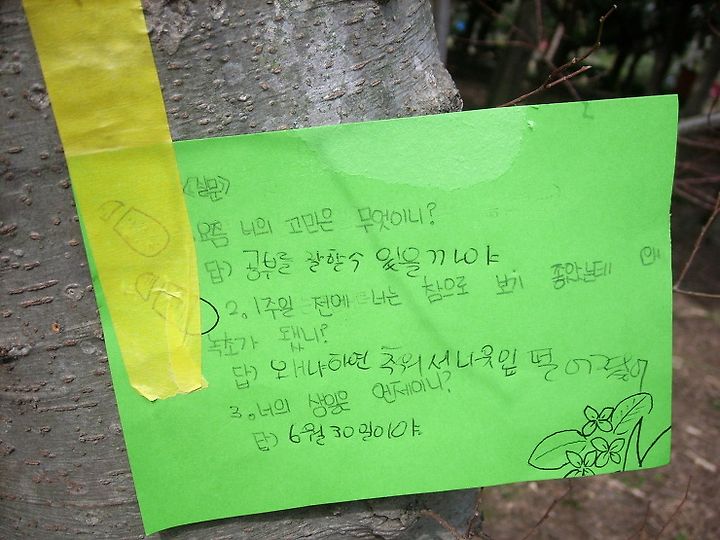 <실문>
요즘 너의 고만은 무엇이니?
답) 공부를 잘할수 있을까야
2. 1주일 전에 너는 참으로 보기 좋았는데 왜
녹초가 됐니?
답) 왜냐하면 추워서 나뭇잎 떨어졌어
3. 너의 생일은 언제이니?
답) 6월 30일이야